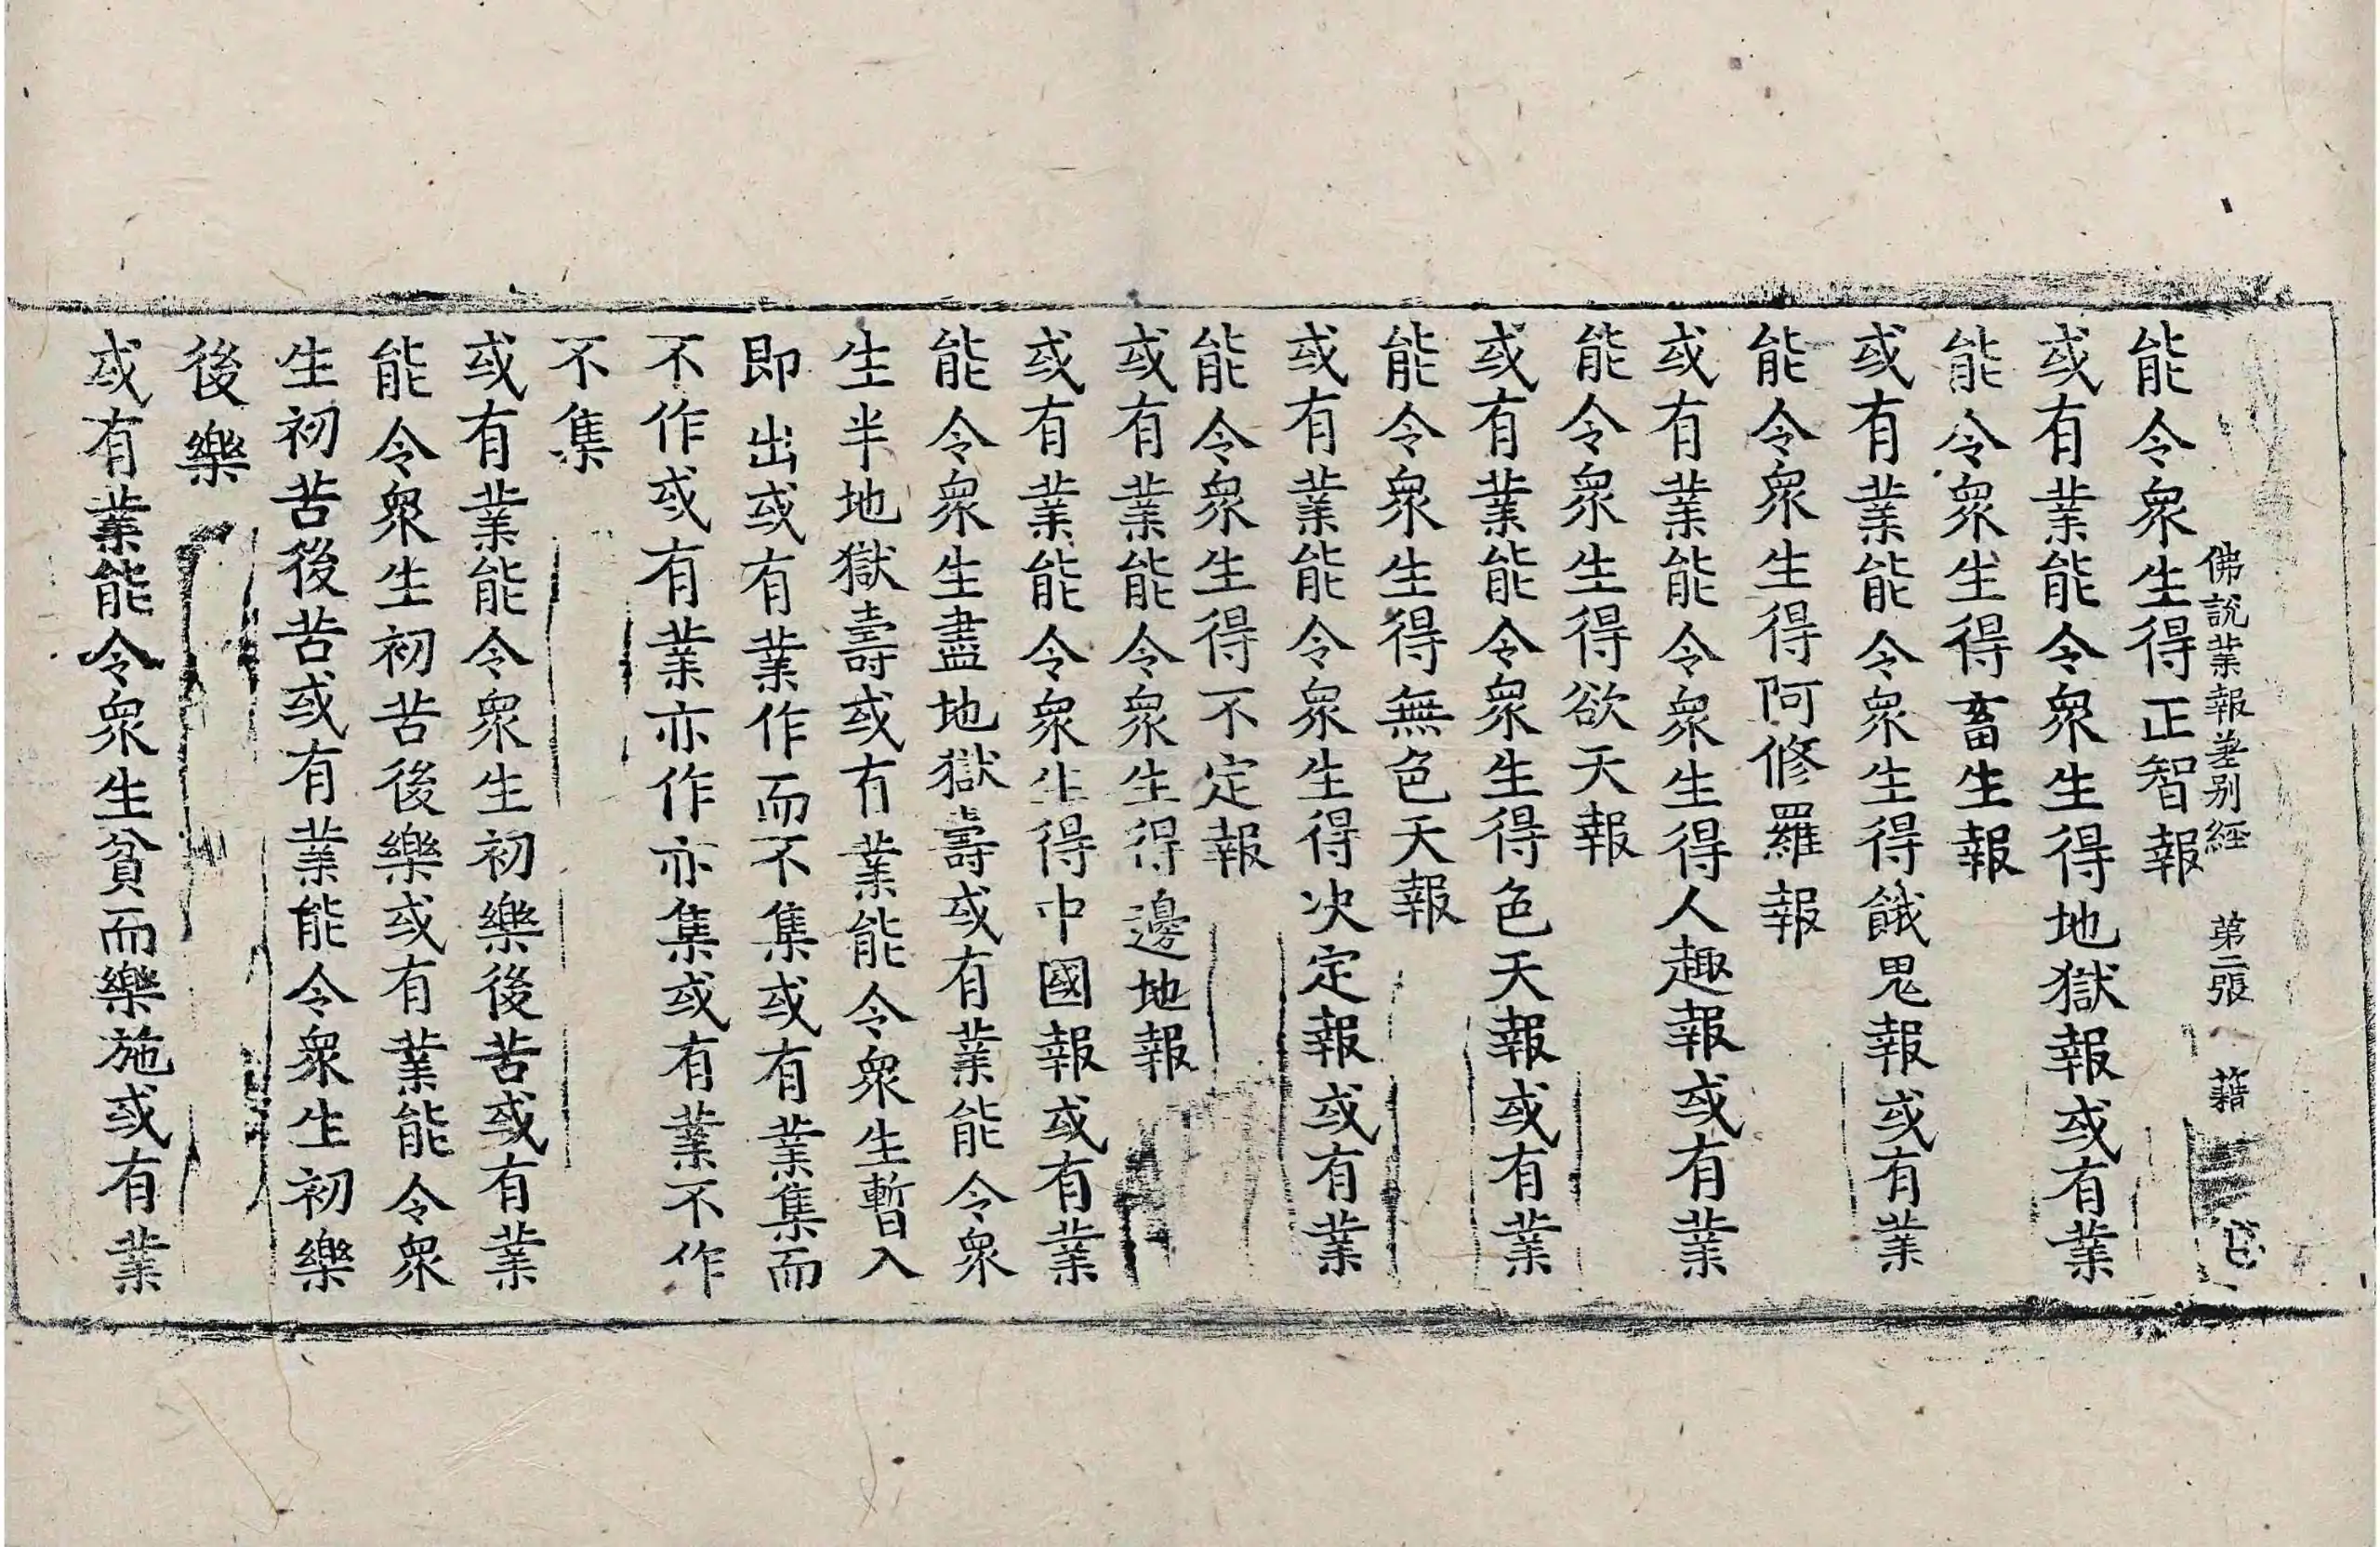 佛說業報差別経　第二張　藉
能令衆生得正智報
或有業能令衆生得地獄報或有業
能令衆生得畜生報
或有業能令衆生得餓鬼報或有業
能令衆生得阿修羅報
或有業能令衆生得人趣報或有業
能令衆生得欲天報
或有業能令衆生得色天報或有業
能令衆生得無色天報
或有業能令衆生得决定報或有業
能令衆生得不定報
或有業能令衆生得邊地報
或有業能令衆生得中國報或有業
能令衆生盡地獄壽或有業能令衆
生半地獄壽或有業能令衆生暫入
即出或有業作而不集或有業集而
不作或有業亦作亦集或有業不作
不集
或有業能令衆生初樂後苦或有業
能令衆生初苦後樂或有業能令衆
生初苦後苦或有業能令衆生初樂
後樂
或有業能令衆生貧而樂施或有業